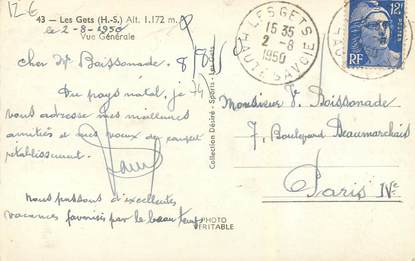 12€
43 - Les Gets (H.-S.) Alt. 1.172 m.
le 2-8-1950
Vue Générale
cher Mr Boissonade.
Du pays natal, je
vous adresse mes meilleures
amitiés et mes vœux de prompt
rétablissement.
nous passons d'excellentes
vacances favorisés par le beau temps
PHOTO
VÉRITABLE
Collection Désiré - Sports - Les Gets
LES GETS
15 35
2 -8
1950
HAUTE SAVOIE
12F
POSTES
RF
Monsieur Boissonade
7, Boulevard Beaumarchais
Paris IVe